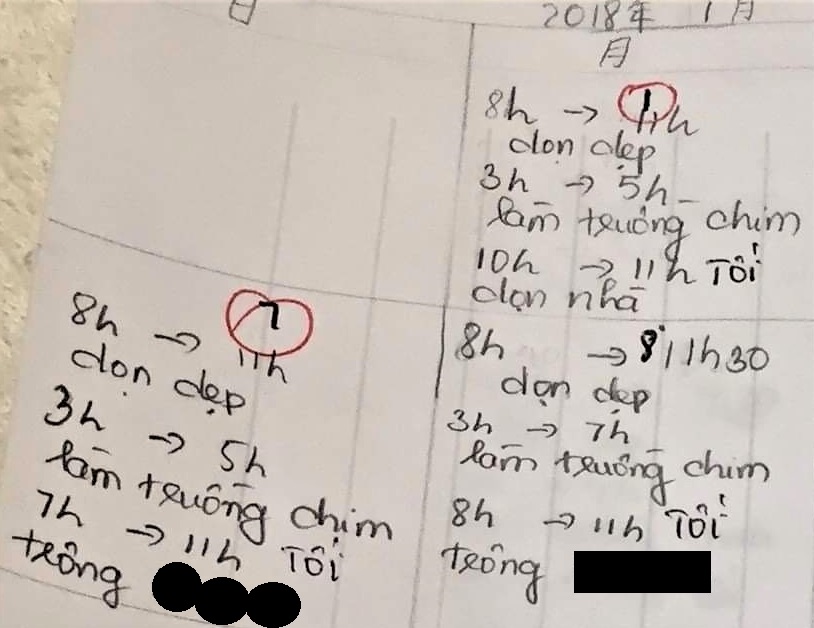 2018年 1月
日
月
1
8h → 11h
dọn dẹp
3h → 5h
làm truồng chim
10h → 11h Tối
dọn nhà
7
8h → 11h
dọn dẹp
3h → 5h
làm truồng chim
7h → 11h Tối
trông
8
8h → 11h30
dọn dẹp
3h → 7h
làm truồng chim
8h → 11h Tối
trông